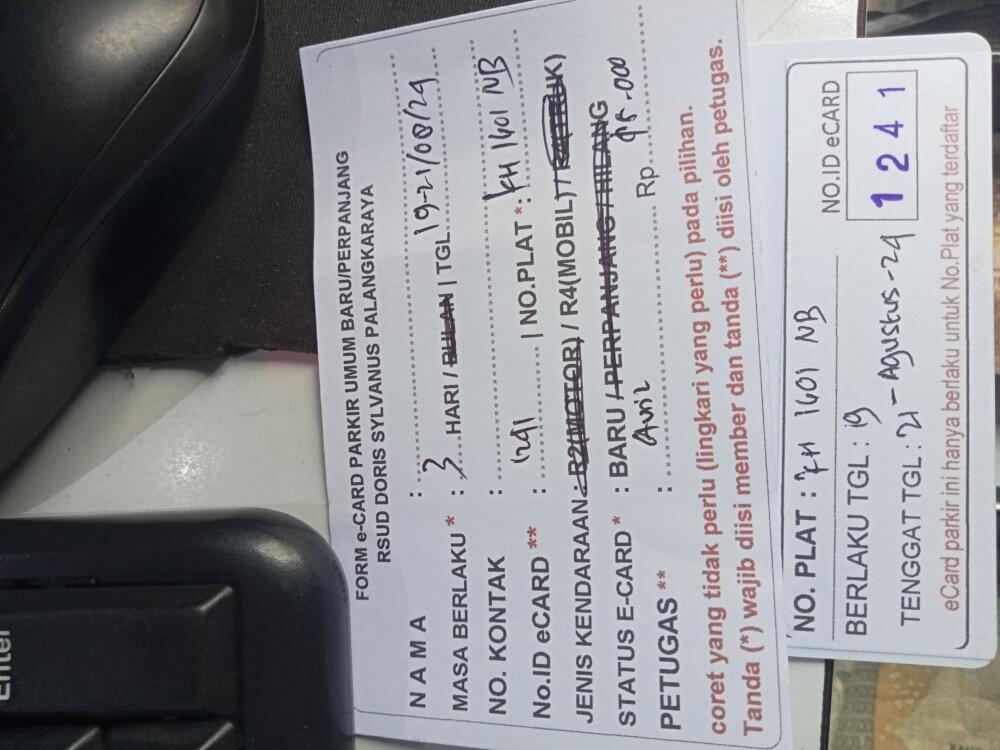 FORM e-CARD PARKIR UMUM BARU/PERPANJANG
RSUD DORIS SYLVANUS PALANGKARAYA
N A M A :
MASA BERLAKU * : 3 HARI / BULAN | TGL. 19-21/08/24
NO. KONTAK :
No.ID eCARD ** : 1241 | NO.PLAT *: KH 1601 NB
JENIS KENDARAAN : R2(MOTOR) / R4(MOBIL) / R4(TRUK)
STATUS E-CARD * : BARU / PERPANJANG / HILANG
PETUGAS ** : Rp
coret yang tidak perlu (lingkari yang perlu) pada pilihan.
Tanda (*) wajib diisi member dan tanda (**) diisi oleh petugas.
NO. PLAT : KH 1601 NB
BERLAKU TGL : 19
TENGGAT TGL : 21 - Agustus - 24
NO.ID eCARD
1 2 4 1
eCard parkir ini hanya berlaku untuk No.Plat yang terdaftar
Enter